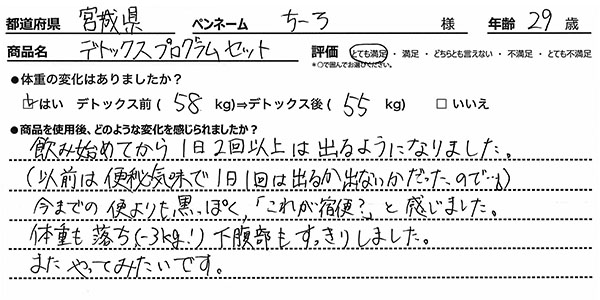 都道府県 宮城県 ペンネーム ちーろ 様 年齢 29 歳
商品名 デトックスプログラムセット 評価 とても満足・満足・どちらとも言えない・不満足・とても不満足
*○で囲んでお選びください。
●体重の変化はありましたか?
☑はい デトックス前 ( 58 kg)⇒デトックス後 ( 55 kg) □いいえ
●商品を使用後、どのような変化を感じられましたか?
飲み始めてから1日2回以上は出るようになりました。
(以前は便秘気味で1日1回は出るか出ないかだったので…)
今までの便よりも黒っぽく、「これが宿便?」と感じました。
体重も落ち(-3kg!)下腹部もすっきりしました。
またやってみたいです。